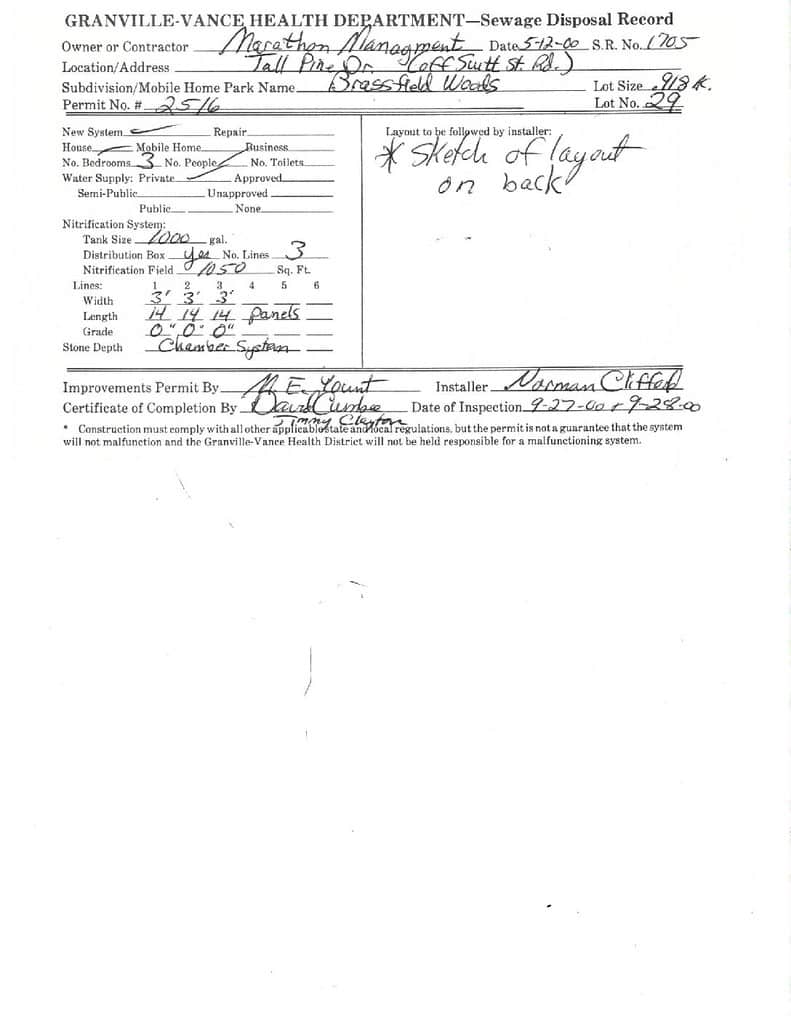 GRANVILLE-VANCE HEALTH DEPARTMENT—Sewage Disposal Record
Owner or Contractor Marathon Managment Date 5-12-00 S.R. No. 1705
Location/Address Tall Pine Dr. (off Suitt St. Rd.)
Subdivision/Mobile Home Park Name Brassfield Woods Lot Size .918 K.
Permit No. # 2516 Lot No. 29
New System ✓ Repair
House ✓ Mobile Home Business
No. Bedrooms 3 No. People No. Toilets
Water Supply: Private ✓ Approved
Semi-Public Unapproved
Public None
Nitrification System:
Tank Size 1000 gal.
Distribution Box yes No. Lines 3
Nitrification Field 1050 Sq. Ft.
Lines: 1 2 3 4 5 6
Width 3' 3' 3'
Length 14 14 14 panels
Grade 0" 0" 0"
Stone Depth Chamber System
Layout to be followed by installer:
* Sketch of layout
on back
Improvements Permit By M. E. Yount Installer Norman Clifted
Certificate of Completion By David Cumbee Date of Inspection 9-27-00 + 9-28-00
Jimmy Clayton
* Construction must comply with all other applicable state and local regulations, but the permit is not a guarantee that the system
will not malfunction and the Granville-Vance Health District will not be held responsible for a malfunctioning system.